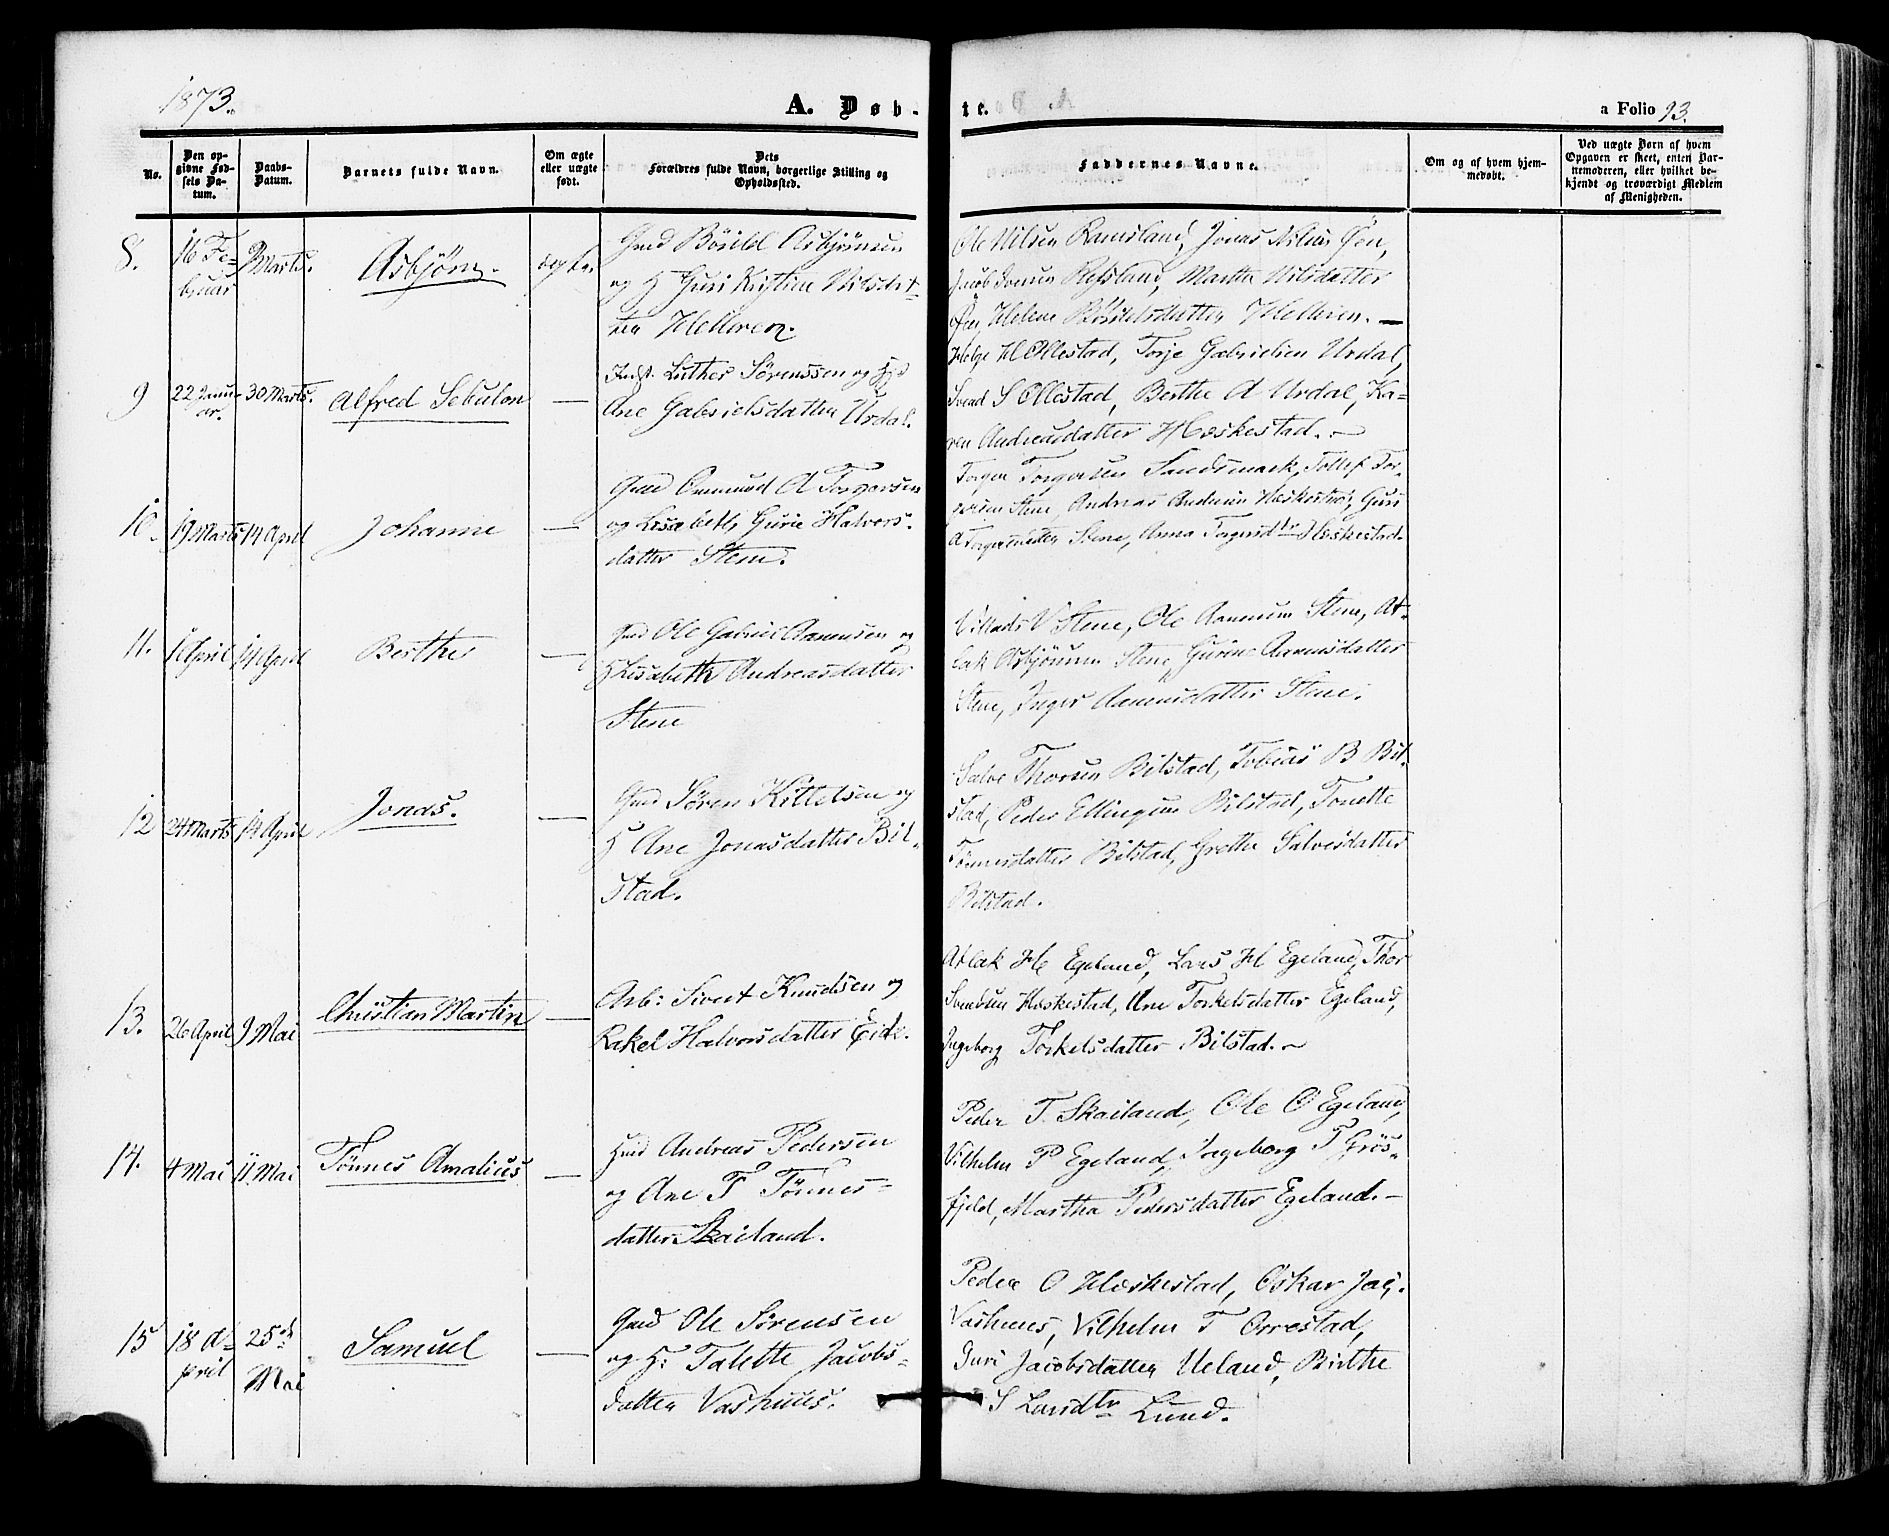 1873.
A. Døb-
te.
a Folio 93.
No.
Den op-
givne Fød-
sels Da-
tum.
Daabs-
Datum.
Barnets fulde Navn.
Om ægte
eller uægte
født.
Dets
Forældres fulde Navn, borgerlige Stilling og
Opholdssted.
Faddernes Navne.
Om og af hvem hjem-
medøbt.
Ved uægte Børn af hvem
Opgaven er skeet, enten Bar-
nemoderen, eller hvilket be-
kjendt og troværdigt Medlem
af Menigheden.
8.
16 Fe-
bruar
9 Marts.
Asbjørn.
ægte.
Gmd Bårild Asbjørnsen
og H Guri Kristine Nilsdat-
ter Helleren.
Ole Nilsen Ramsland, Jonas Nilsen Øen,
Jacob Iversen Refsland, Marthe Nilsdatter
Øen, Helene Bårildsdatter Helleren. —
9
22 Janu-
ar.
30 Marts.
Alfred Sebulon
—
Inst. Luther Sørenssen og H
Ane Gabrielsdatter Urdal.
Helge H Ollestad, Torje Gabrielsen Urdal,
Svend S Ollestad, Berthe A Urdal, Ka-
ren Andreasdatter Heskestad. —
10.
19 Marts
14 April
Johanne
—
Gmd Ommund A Torgersen
og Lisabeth Gurie Halvors-
datter Stene.
Torger Torgersen Sandsmark, Tollef Tor-
gersen Stene, Andreas Andersen Heskestad, Guri
A Torgersdatter Stene, Anna Torgersdtr Heskestad.
11.
1 April
14 April
Berthe
—
Gmd Ole Gabriel Aanensen og
H Lisabeth Andreasdatter
Stene
Villads V Stene, Ole Aanensen Stene, At-
lak Asbjørnsen Stene, Gurine Aanensdatter
Stene, Inger Aanensdatter Stene.
12
24 Marts
14 April
Jonas.
—
Gmd Søren Kittelsen og
H Ane Jonasdatter Bil-
stad.
Salve Thorsen Bilstad, Tobias B Bil-
stad, Peder Ellingsen Bilstad, Tonette
Tønnesdatter Bilstad, Grethe Salvesdatter
Bilstad.
13.
26 April
9 Mai
Christian Martin
—
Arb: Sivert Knudsen og
Rakel Halvorsdatter Eide.
Atlak H Egeland, Lars H Egeland, Thor
Svendsen Heskestad, Ane Torkelsdatter Egeland,
Ingeborg Torkelsdatter Bilstad. —
14.
4 Mai
11 Mai
Tønnes Amalius
—
Hmd Andreas Pedersen
og Ane T Tønnes-
datter Skailand.
Peder T. Skailand, Ole O Egeland,
Vilhelm P Egeland, Ingeborg T Grøs-
fjeld, Martha Pedersdatter Egeland. —
15
18 A-
pril
25de
Mai
Samuel
—
Gmd Ole Sørensen
og H: Talette Jacobs-
datter Vashuus.
Peder O Heskestad, Oskar Jac.
Vashuus, Vilhelm T Orrestad,
Guri Jacobsdatter Ueland, Birthe
S Larsdtr Lund.